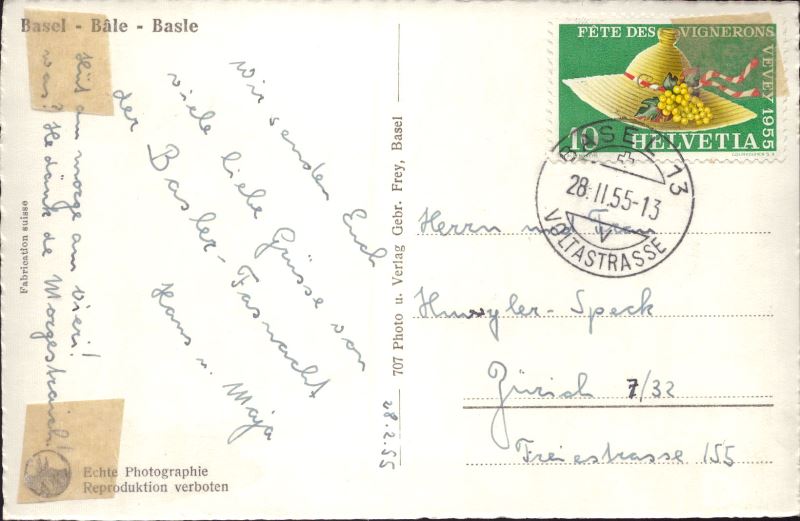 Basel - Bâle - Basle
Hüt am morge am vieri!
wär? He dängg de Morgestraich!
Wir senden Euch
viele liebe Grüsse von
der Basler-Fasnacht
Hans u. Maja
28.2.55
Fabrication suisse
Echte Photographie
Reproduktion verboten
707 Photo u. Verlag Gebr. Frey, Basel
FÊTE DES VIGNERONS
VEVEY 1955
10 HELVETIA
BASEL 13
28.II.55-13
V
VOLTASTRASSE
Herrn und Frau
Huwyler-Speck
Zürich 7/32
Freiestrasse 155